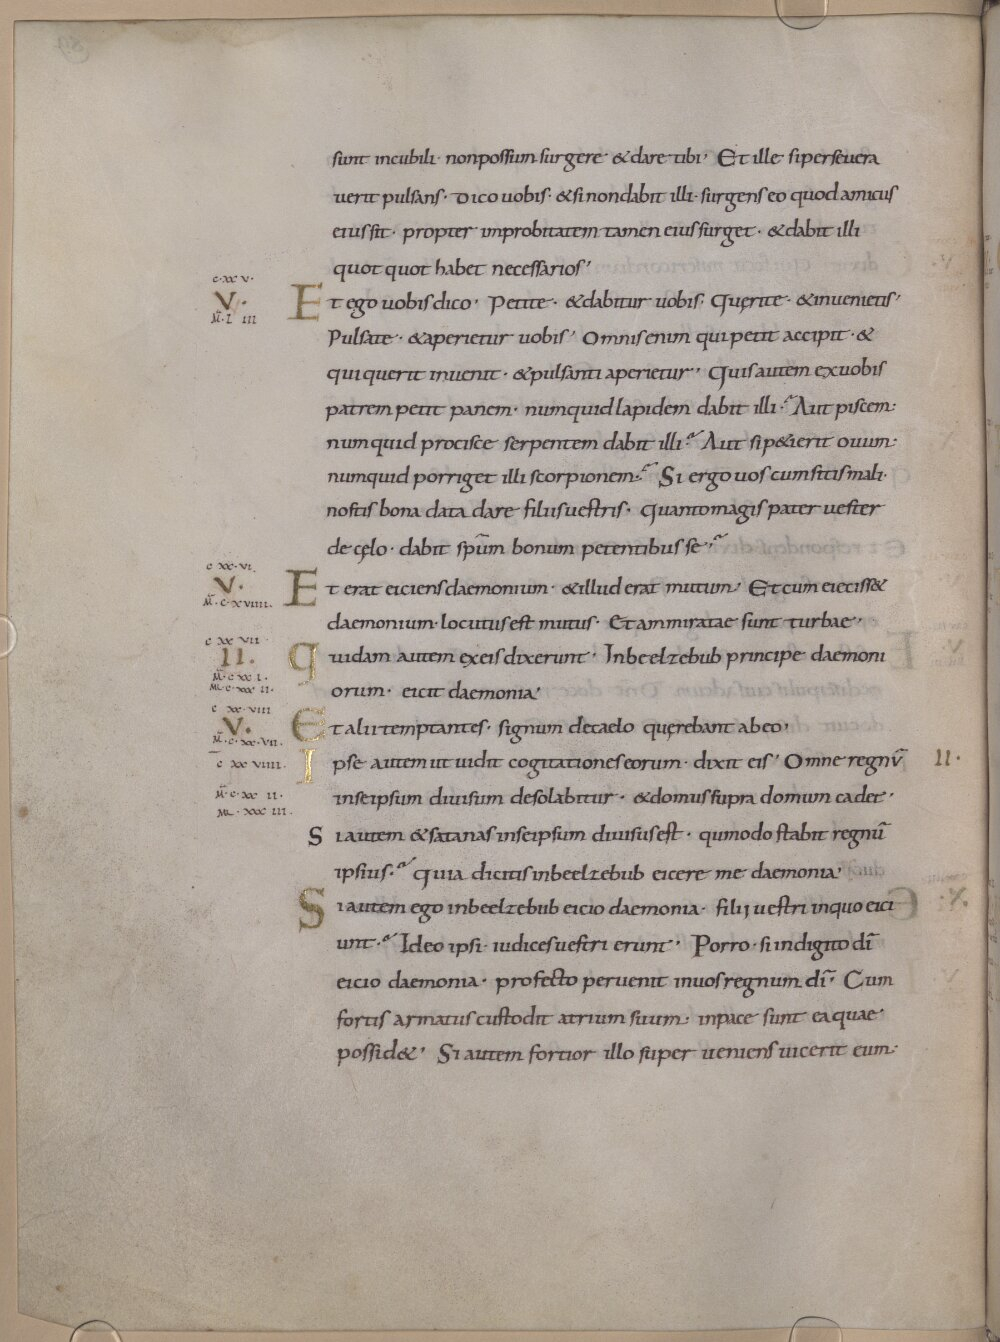 sunt incubili· nonpossum surgere· &dare tibi· Et ille siperseuera
uerit pulsans· Dico uobis· &sinondabit illi· surgens eo quod amicus
eius sit· propter improbitatem tamen eius surget· &dabit illi
quot quot habet necessarios·
c·xx v·
V·
M̄·L III
Et ego uobis dico· Petite· &dabitur uobis· Quęrite· &inuenietis·
Pulsate· &aperietur uobis· Omnis enim qui petit accipit· &
qui querit inuenit· &pulsanti aperietur· Quis autem exuobis
patrem petit panem· numquid lapidem dabit illi· Aut piscem·
numquid procisce serpentem dabit illi· Aut si p&ierit ouum·
numquid porriget illi scorpionem· Si ergo uos cum sitis mali·
nostis bona data dare filiis uestris· quantomagis pater uester
de cęlo· dabit sp̄um bonum petentibus se·
c xx·VI·
V·
M̄·c·xVIIII·
Et erat eiciens daemonium· &illud erat mutum· Et cum eieciss&
daemonium· locutus est mutus· Et ammiratae sunt turbae·
c xx VII·
II·
M̄·c·xx I·
quidam autem exeis dixerunt· Inbeelzebub principe daemoni
Mc·c·xxx II·
orum· eicit daemonia·
c xx·VIII
V·
M̄·c·xx·VII·
Et alii temptantes· signum decaelo quęrebant ab eo·
c̄ xx VIIII·
Ipse autem ut uidit cogitationes eorum· dixit eis· Omne regnū
II·
M̄·c·xx II·
inseipsum diuisum desolabitur· &domus supra domum cadet·
Mc·xxx III·
Si autem &satanas inseipsum diuisus est· qumodo stabit regnū
ipsius· Quia dicitis inbeelzebub eicere me daemonia·
Si autem ego inbeelzebub eicio daemonia· filij uestri inquo eici
unt· Ideo ipsi· iudices uestri erunt· Porro· si indigito dī
eicio daemonia· profecto peruenit inuos regnum dī· Cum
fortis armatus custodit atrium suum· inpace sunt ea quae
possid&· Si autem fortior illo super ueniens uicerit eum·